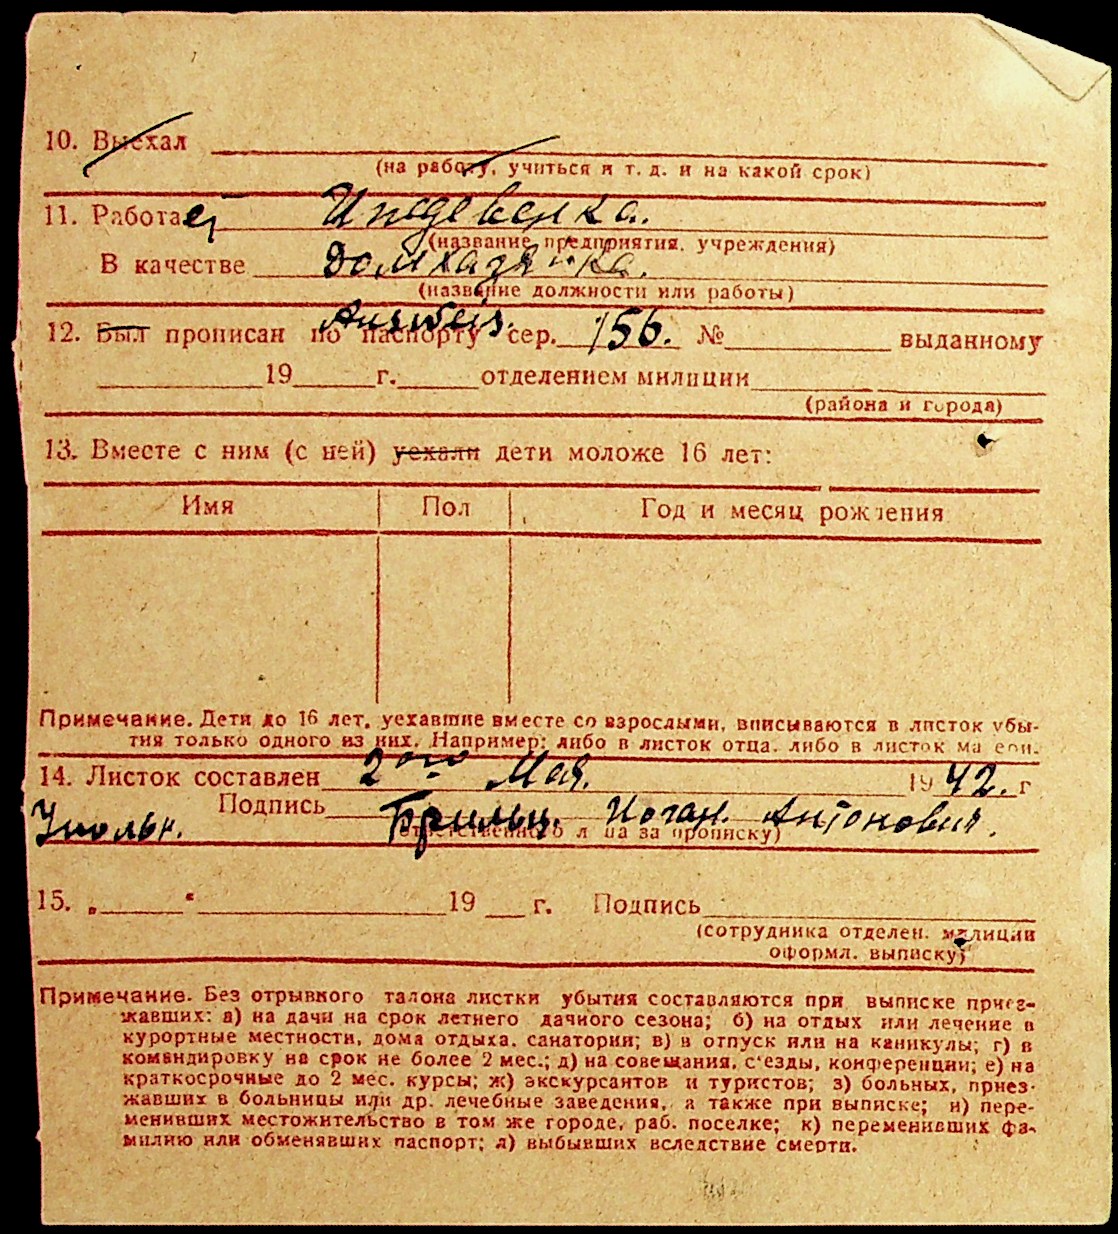 10. Выехал
(на работу, учиться и т. д. и на какой срок)
11. Работает Иждевенка.
(название предприятия, учреждения)
В качестве домхазяйка.
(название должности или работы)
Ausweis.
12. Был прописан по паспорту сер. 156. № выданному
19 г. отделением милиции
(района и города)
13. Вместе с ним (с ней) уехали дети моложе 16 лет:
Имя Пол Год и месяц рождения
Примечание. Дети до 16 лет, уехавшие вместе со взрослыми, вписываются в листок убы-
тия только одного из них. Например: либо в листок отца, либо в листок матери.
14. Листок составлен 2ого Мая. 1942. г
Уполн. Подпись Брильц. Иоган. Антонович.
(ответственного лица за прописку)
15. „ “ 19 г. Подпись
(сотрудника отделен. милиции
оформл. выписку)
Примечание. Без отрывного талона листки убытия составляются при выписке приез-
жавших: а) на дачи на срок летнего дачного сезона; б) на отдых или лечение в
курортные местности, дома отдыха, санатории; в) в отпуск или на каникулы; г) в
командировку на срок не более 2 мес.; д) на совещания, с'езды, конференции; е) на
краткосрочные до 2 мес. курсы; ж) экскурсантов и туристов; з) больных, приез-
жавших в больницы или др. лечебные заведения, а также при выписке; и) пере-
менивших местожительство в том же городе, раб. поселке; к) переменивших фа-
милию или обменявших паспорт; л) выбывших вследствие смерти.